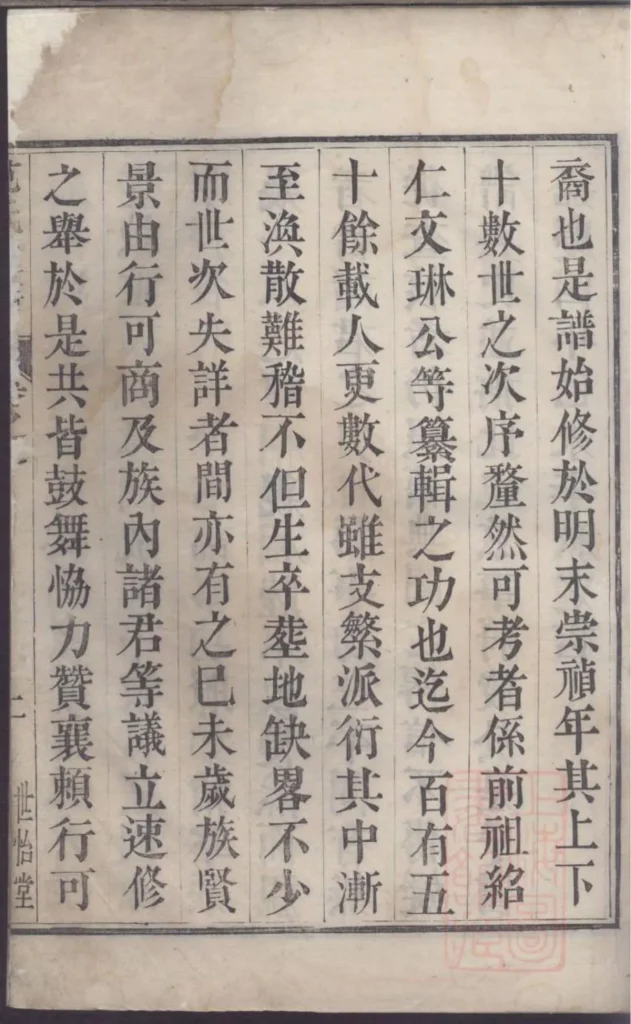 裔也是譜始修於明末崇禎年其上下
十數世之次序釐然可考者係前祖紹
仁文琳公等纂輯之功也迄今百有五
十餘載人更數代雖支繁派衍其中漸
至渙散難稽不但生卒塟地缺畧不少
而世次失詳者間亦有之巳未歲族賢
景由行可商及族內諸君等議立速修
之舉於是共皆鼓舞恊力贊襄賴行可
二
世怡堂